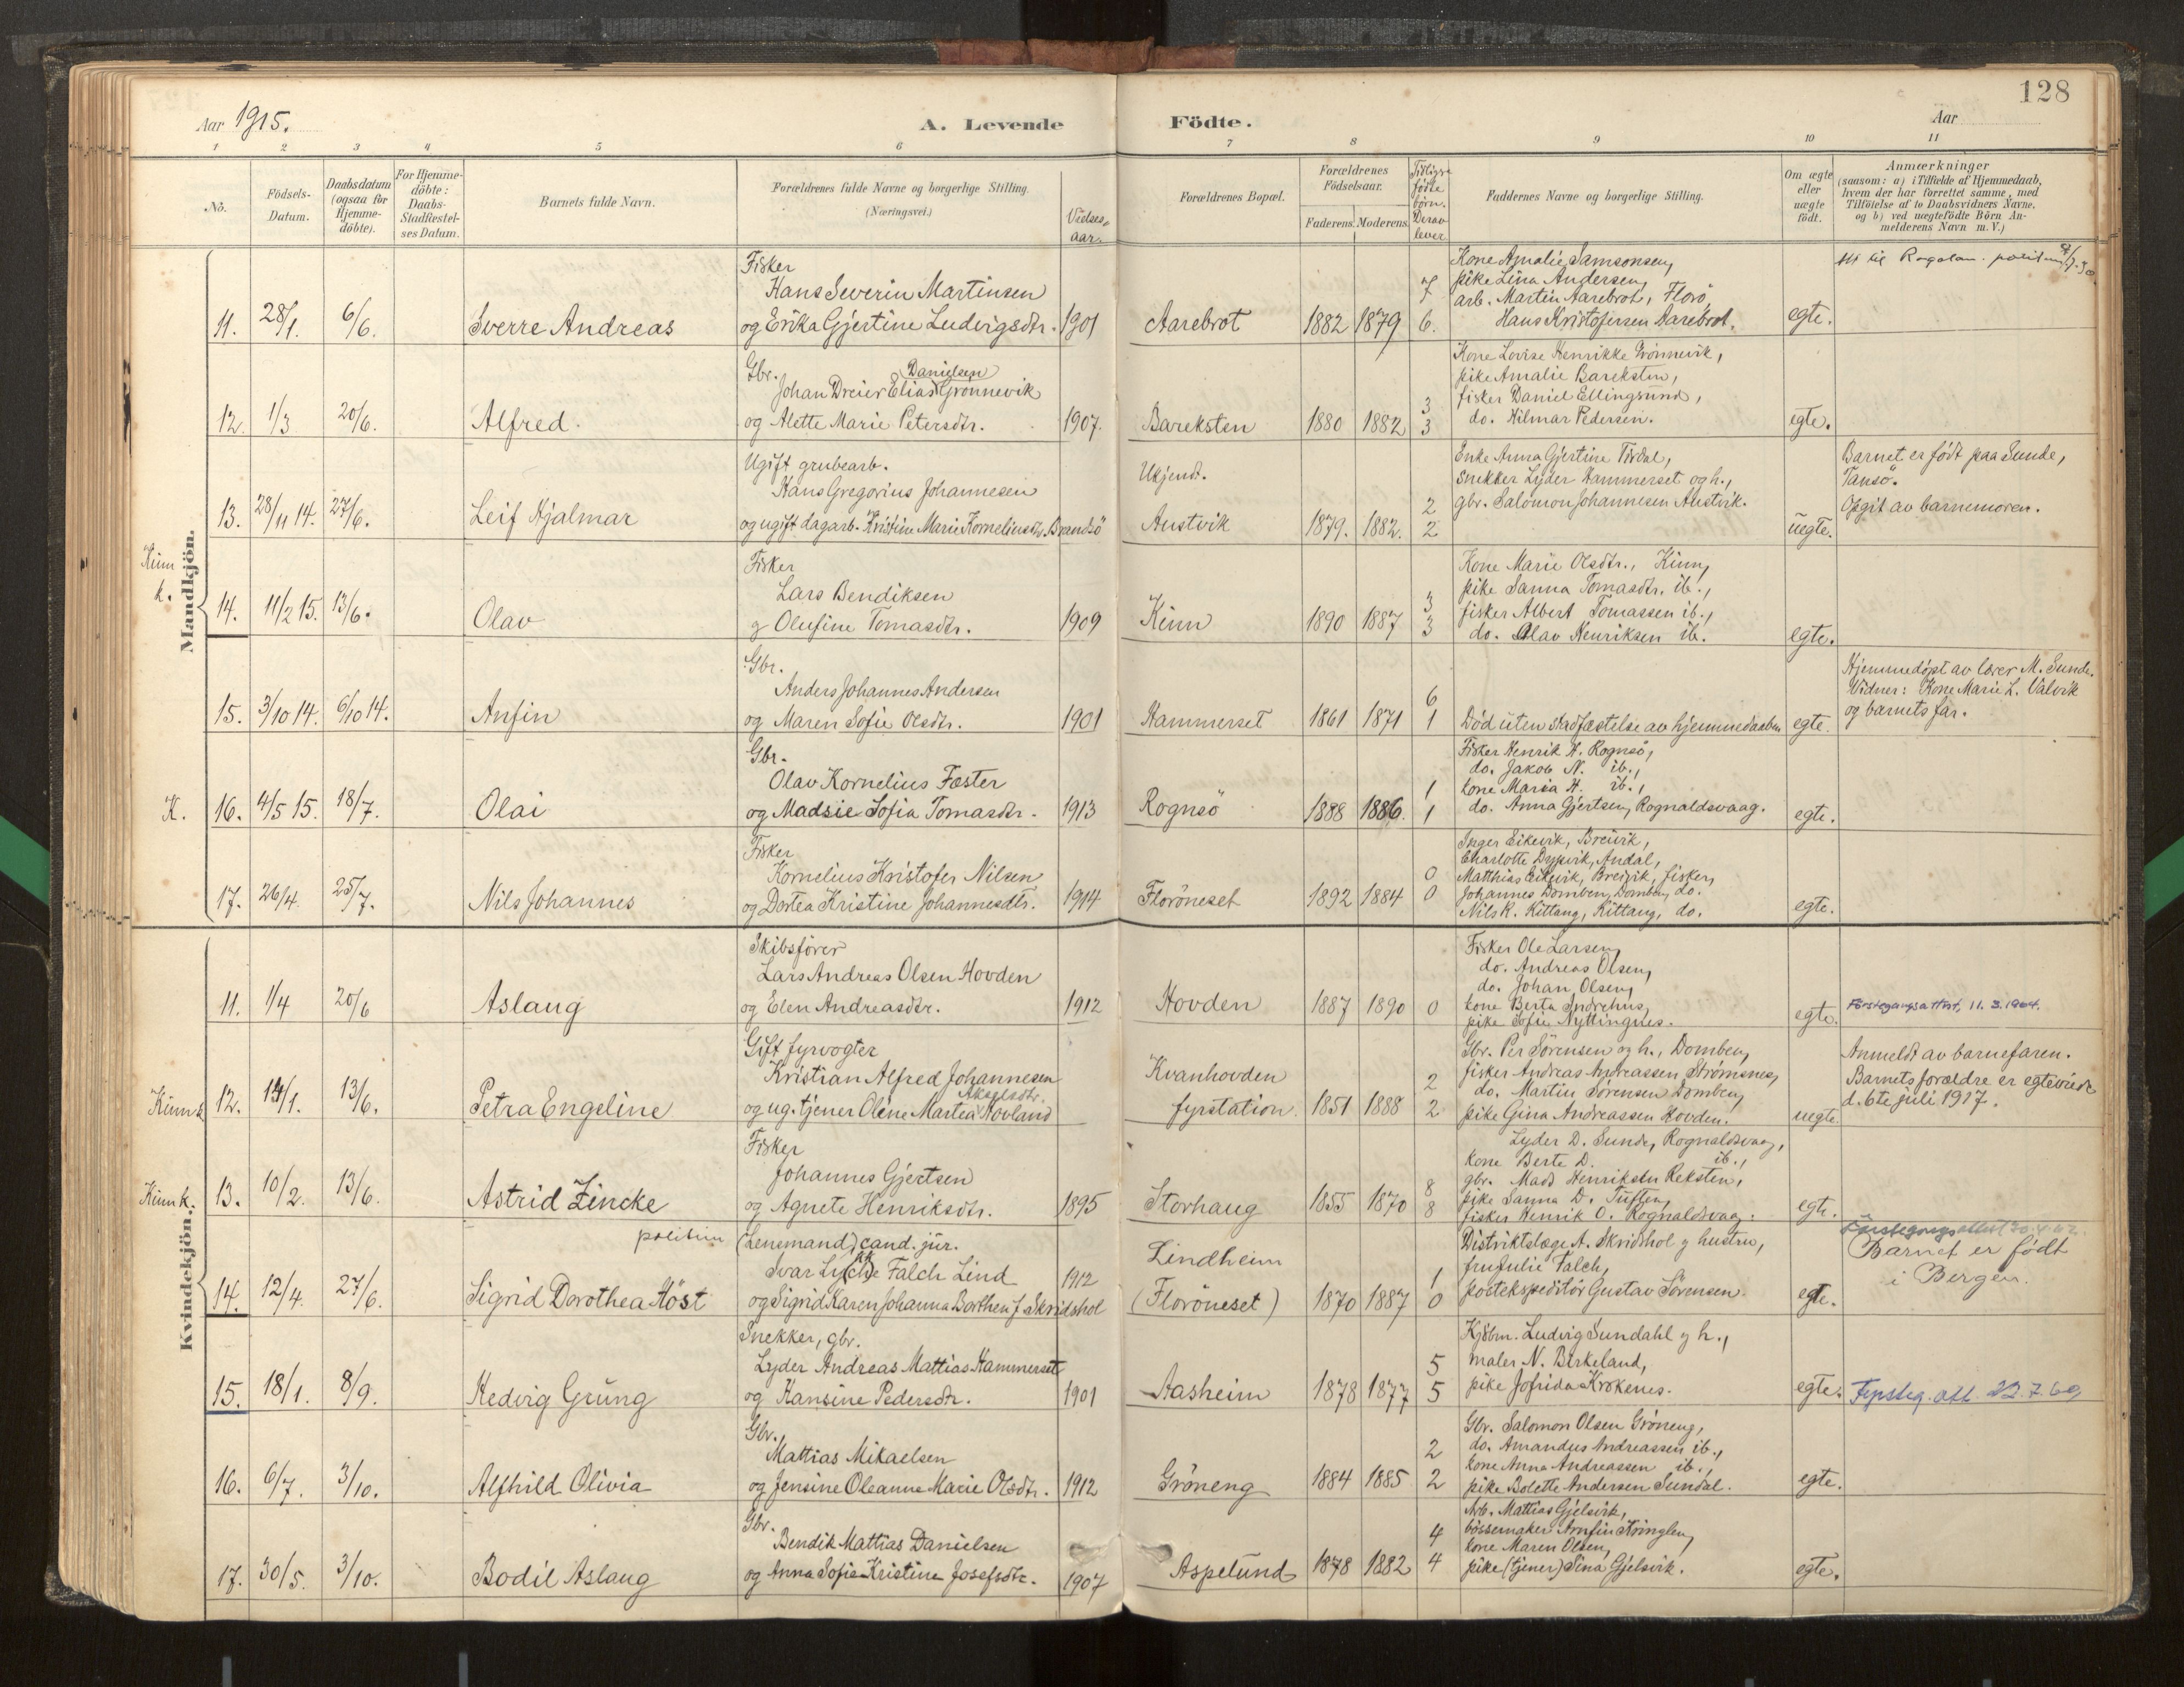 128
Aar 1915.
A. Levende Födte.
Aar
1 2 3 4 5 6 7 8 9 10 11
No.
Födsels-Datum.
Daabsdatum (ogsaa for Hjemme-döbte).
For Hjemme-döbte: Daabs-Stadfæstel-ses Datum.
Barnets fulde Navn.
Forældrenes fulde Navne og borgerlige Stilling.
(Næringsvei.)
Vielses-aar.
Forældrenes Bopæl.
Forældrenes Födselsaar.
Faderens. Moderens.
Tidligere födte börn. Derav lever
Faddernes Navne og borgerlige Stilling.
Om ægte eller uægte födt.
Anmærkninger
(saasom: a) i Tilfælde af Hjemmedaab,
hvem der har forrettet samme, med
Tilföielse af to Daabsvidners Navne,
og b) ved uægtefödte Börn An-
melderens Navn m. V.)
Mandkjön.
Fisker
Hans Severin Martinsen
11. 28/1. 6/6. Sverre Andreas og Erika Gjertine Ludvigsdtr. 1901 Aarebrot 1882 1879 7 6.
Kone Amalie Samsonsen,
pike Lina Andersen,
arb. Martin Aarebrot, Florö,
Hans Kristofersen Aarebrot.
egte.
Att til Rogalan. politim
Gbr.
Danielsen
Johan Dreier Elias Grönnevik
12. 1/3 20/6. Alfred. og Alette Marie Petersdtr. 1907. Bareksten 1880 1882 3 3
Kone Lovise Henrikke Grönnevik,
pike Amalie Bareksten,
fisker Daniel Ellingsund,
do. Hilmar Pedersen.
egte.
Ugift grubearb.
Hans Gregorius Johannesen
13. 28/11 14. 27/6. Leif Hjalmar og ugift dagarb. Kristine Marie Korneliusdtr. Brandsö
Ukjendt.
Austvik 1879. 1882. 2 2
Enke Anna Gjertine Tirdal,
Snikker Lyder Hammerset og h.,
gbr. Salomon Johannesen Austvik.
uegte.
Barnet er födt paa Sunde,
Tansö.
Opgit av barnemoren.
Kinn k.
Fisker
Lars Bendiksen
14. 11/2 15. 13/6. Olav g Olufine Tomasdtr. 1909 Kinn 1890 1887 3 3
Kone Marie Olsdtr., Kinn,
pike Sanna Tomasdtr. ib.,
fisker Albert Tomassen ib.,
do. Olav Henriksen ib.
egte.
Gbr.
Anders Johannes Andersen
15. 3/10 14. 6/10 14. Anfin og Maren Sofie Olsdtr. 1901 Hammerset 1861 1871 6 1
Död uten stadfæstelse av hjemmedaaben
egte.
Hjemmedöpt av lærer M. Sunde.
Vidner: Kone Marie L. Valvik
og barnets far.
K.
Gbr.
Olav Kornelius Fæster
16. 4/5 15. 18/7. Olai og Madsie Sofia Tomasdtr. 1913 Rognsö 1888 1886. 1 1
Fisker Henrik H. Rognsö,
do. Jakob N. ib.,
kone Maria H. ib.,
do. Anna Gjertsen, Rognaldsvaag.
egte.
Fisker
Kornelius Kristofer Nilsen
17. 26/4. 25/7. Nils Johannes og Dortea Kristine Johannesdtr. 1914 Floröneset 1892 1884 0 0
Inger Eikevik, Breivik,
Charlotte Dypvik, Andal,
Matthias Eikevik, Breivik, fisker,
Johannes Domben, Domben, do.
Nils K. Kittang, Kittang, do.
egte.
Kvindekjön.
Skibsförer
Lars Andreas Olsen Hovden
11. 1/4 20/6 Aslaug og Elen Andreasdtr. 1912 Hovden 1887 1890 0
Fisker Ole Larsen,
do. Andreas Olsen,
do. Johan Olsen,
kone Berta Indrehus,
pike Sofie Nyttingnes.
egte.
Förstegangsattest, 11. 3. 1964.
Kinn k.
Gift fyrvogter
Kristian Alfred Johannesen
Akselsdtr.
12. 14/1. 13/6. Petra Engeline og ug. tjener Oline Martea Hovland
Kvanhovden
fyrstation. 1851 1888 2 2
Gbr. Per Sörensen og h., Domben,
fisker Andreas Andreassen Strömsnes,
do. Martin Sörensen Domben,
pike Gina Andreassen Hovden.
uegte.
Anmeldt av barnefaren.
Barnets forældre er egteviede
d. 6te juli 1917.
Kinn k.
Fisker
Johannes Gjertsen
13. 10/2. 13/6. Astrid Zincke og Agnete Henriksdtr. 1895 Storhaug 1855 1870 8 8
Lyder D. Sunde, Rognaldsvaag,
kone Berte D. ib.,
gbr. Mads Henriksen Reksten,
pike Sanna D. Tuften,
fisker Henrik O. Rognaldsvaag.
egte.
politim (Lensmand) cand. jur.
Ivar Lyche Falch Lind
14. 12/4. 27/6. Sigrid Dorothea Höst og Sigrid Karen Johanna Barthen f. Skridshol 1912
Lindheim
(Floröneset) 1870 1887 1 0
Distriktslæge A. Skridshol g hustru,
fru Julie Falch,
postekspeditör Gustav Sörensen.
egte.
Förstegangsattest
Barnet er födt
i Bergen.
Snekker, gbr.
Lyder Andreas Mattias Hammerset
15. 18/1. 8/9. Hedvig Grüng og Hansine Pedersdtr. 1901 Aasheim 1878 1877 5 5
Kjöbm. Ludvig Sundahl g h.,
maler N. Birkeland,
pike Jofrida Krokenes.
egte.
Försteg. att. 22.7.60
Gbr.
Mattias Mikaelsen
16. 6/7. 3/10. Alfhild Olivia og Jensine Oleanne Marie Olsdtr. 1912 Gröneng 1884 1885 2 2
Gbr. Salomon Olsen Gröneng,
do. Amandus Andreassen ib.,
kone Anna Andreassen ib.,
pike Bolette Andersen Sundal.
egte.
Gbr.
Bendik Mattias Danielsen
17. 30/5. 3/10. Bodil Aslaug og Anna Sofie Kristine Josefsdtr. 1907 Aspelund 1878 1882 4 4
Arb. Mattias Gjelsvik,
bössemaker Arnfin Kringlen,
kone Maren Olsen,
pike (tjener) Sina Gjelsvik.
egte.